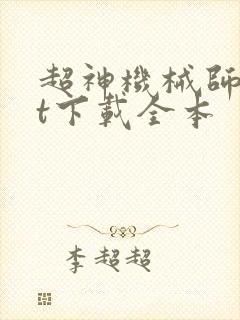 超神機械師
t下載全本
李超超